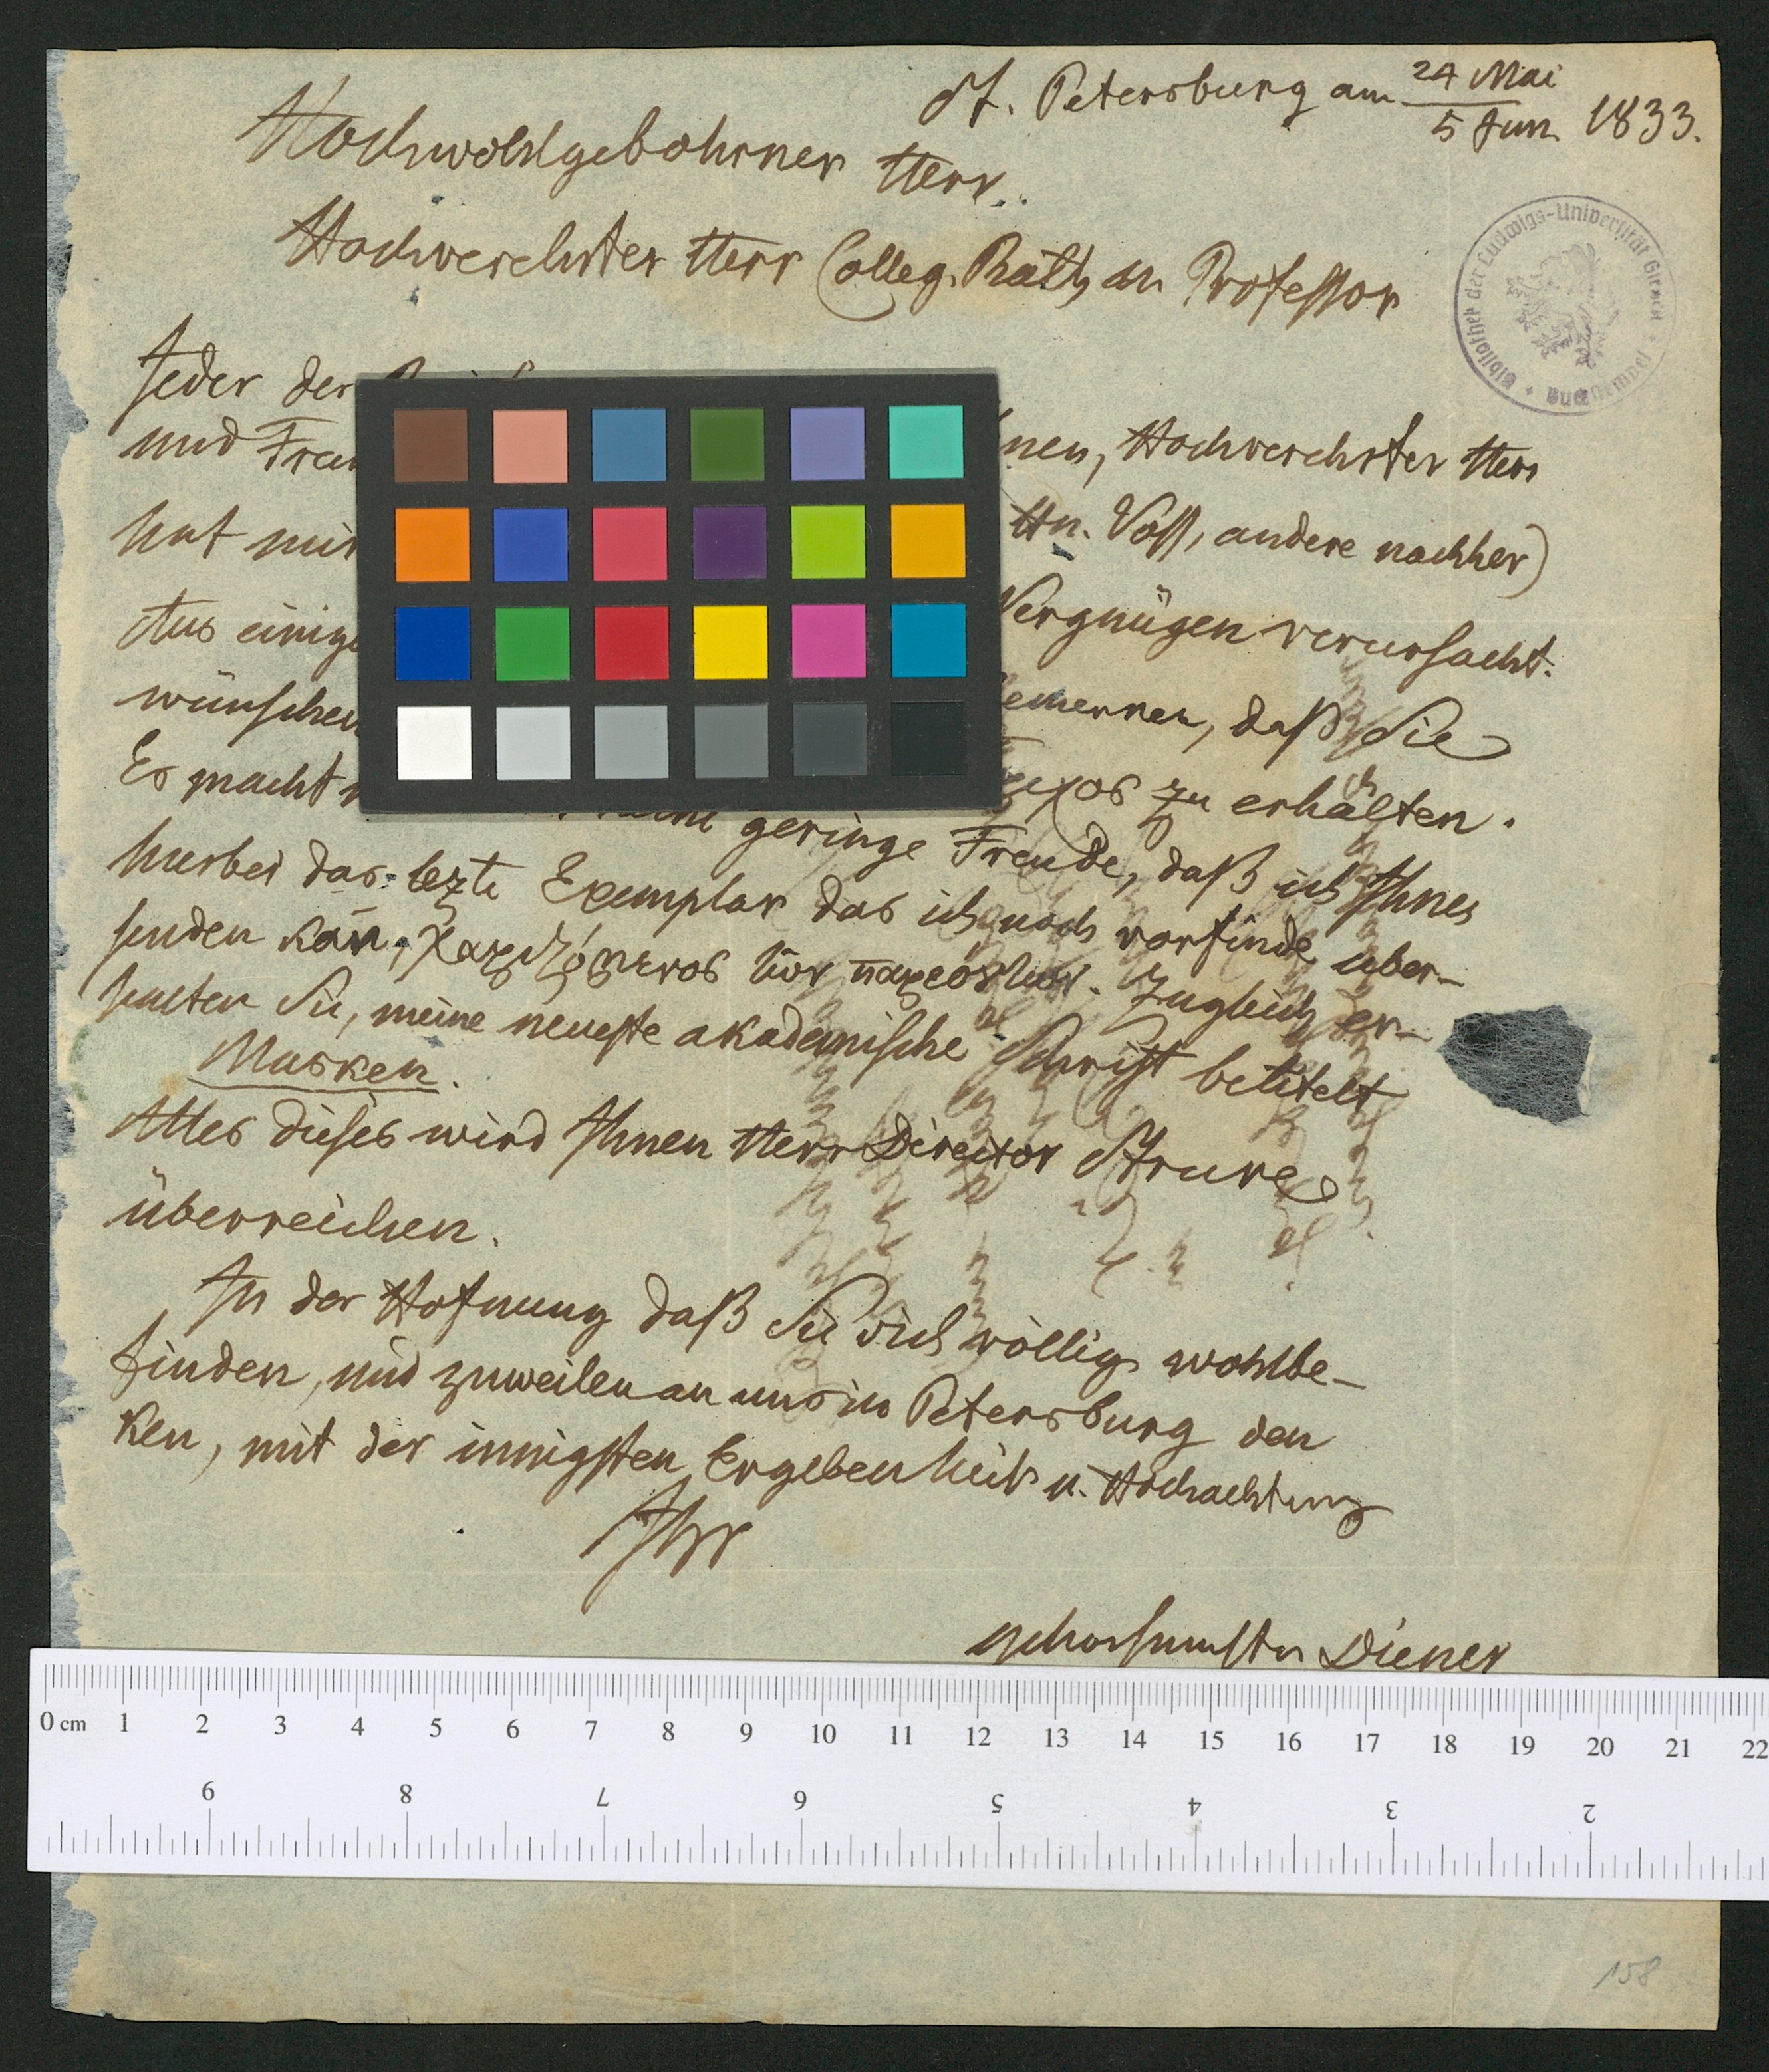 St. Petersburg am 24 Mai / 5 Jun. 1833.
Hochwohlgebohrner Herr
Hochverehrter Herr Colleg. Rath u. Professor
Bibliothek der Ludwigs-Universität Giessen
Jeder der
und
nen, Hochverehrter Herr
hat mir
Hn. Voss, andere nachher)
Aus einige
Vergnügen verursacht.
wünschen
emerken, daß Sie
zu erhalten.
Es macht
geringe Freude, daß ich Ihnen
hierbei das lezte Exemplar das ich noch vorfinde über-
senden kan̄, Zugleich er-
halten Sie, meine neueste akademische Schrift betitelt
Masken.
Alles dieses wird Ihnen Herr Director Struve
überreichen.
In der Hofnung daß Sie sich völlig wohlbe-
finden, und zuweilen an uns in Petersburg den
ken, mit der innigsten Ergebenheit u. Hochachtung
Ihr
gehorsamster Diener
0 cm 1 2 3 4 5 6 7 8 9 10 11 12 13 14 15 16 17 18 19 20 21 22
9 8 7 6 5 4 3 2
158